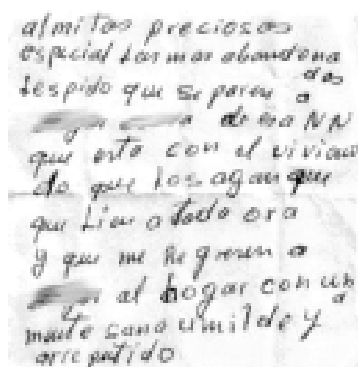 almitas preciosas
especial las mas abandona
das
les pido que se paren a
de esa NN
que esta con el vivien
do que los agan que
que a todo ora
y que me regresen a
al hogar con un
a
mente sana umilde y
arrepentido